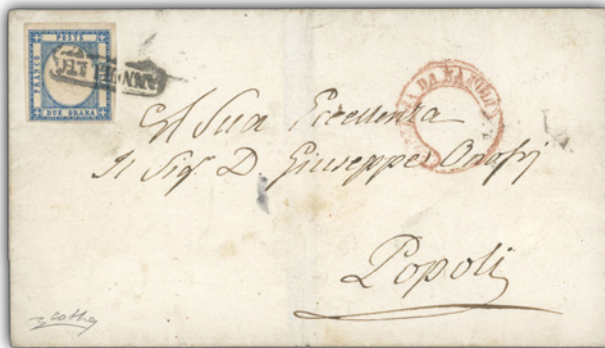 POSTE
FRANCO
DUE GRANA
ANNULLATO
DA NAPOLI
A Sua Eccellenza
Il Sig. D. Giuseppe Onofrj
Popoli